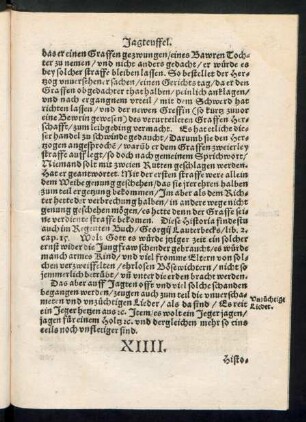 Jagteuffel.
das er einen Graffen gezwungen/eines Bawren Toch-
ter zu nemen/ vnd nicht anders gedacht/ er würde es
bey solcher straffe bleiben lassen. So bestellet der Her-
tzog vnuersehen/ einen Gerichtstag/ da er den
Graffen obgedachter that halben/ peinlich anklagen/
vnd nach ergangnem vrteil/ mit dem Schwerd hat
richten lassen/ vnd der newen Greffin (so kurtz zuuor
eine Bewrin gewesen) des verurteilten Graffen Her-
schafft/ zum leibgeding vermacht. Es hat etliche die-
ser handel zu schwinde gedaucht/ Darumb sie den Her-
tzogen angesprochē/ warüb er dem Graffen zweierley
straffe aufflegt/so doch nach gemeinem Sprichwort/
Niemand solt mit zweien Rutten geschlagen werden.
Hat er geantwortet. Mit der ersten straffe were allein
dem Weibe genung geschehen/das sie jrer ehren halben
zum teil ergetzung bekommen/ Im aber als dem Rich-
ter hette der verbrechung halben/ in andere wege nicht
genung geschehen mögen/es hette denn der Graffe seine
verdiente straffe bekomen. Diese Historia findest
auch im Regenten Buch/ Georgij Lauterbecks/ lib. 2.
cap. 15. Wolt Gott es würde jtziger zeit ein solcher
ernst wider die Jungfrawschender gebraucht/ es würde
manch armes Kind/ vnd viel fromme Eltern von sol-
chen verzweiffelten/ ehrlosen Bösewichtern/ nicht so
jemmerlich betrübt/ vñ vnter die erden bracht werden.
Das aber auff Jagten offt vnd viel solche schanden
begangen werden/ zeugen auch zum teil die vnuerscha-
meten vnd vnzüchtigen Lieder/ als da sind/ Es reit
ein Jeger hetzen aus ꝛc. Item/ es wolt ein Jeger jagen/
jagen für einem Holtz ꝛc. vnd dergleichen mehr so eins
teils noch vnfletiger sind.
Vnzüchtige
Lieder.
XIIII.
Histo-